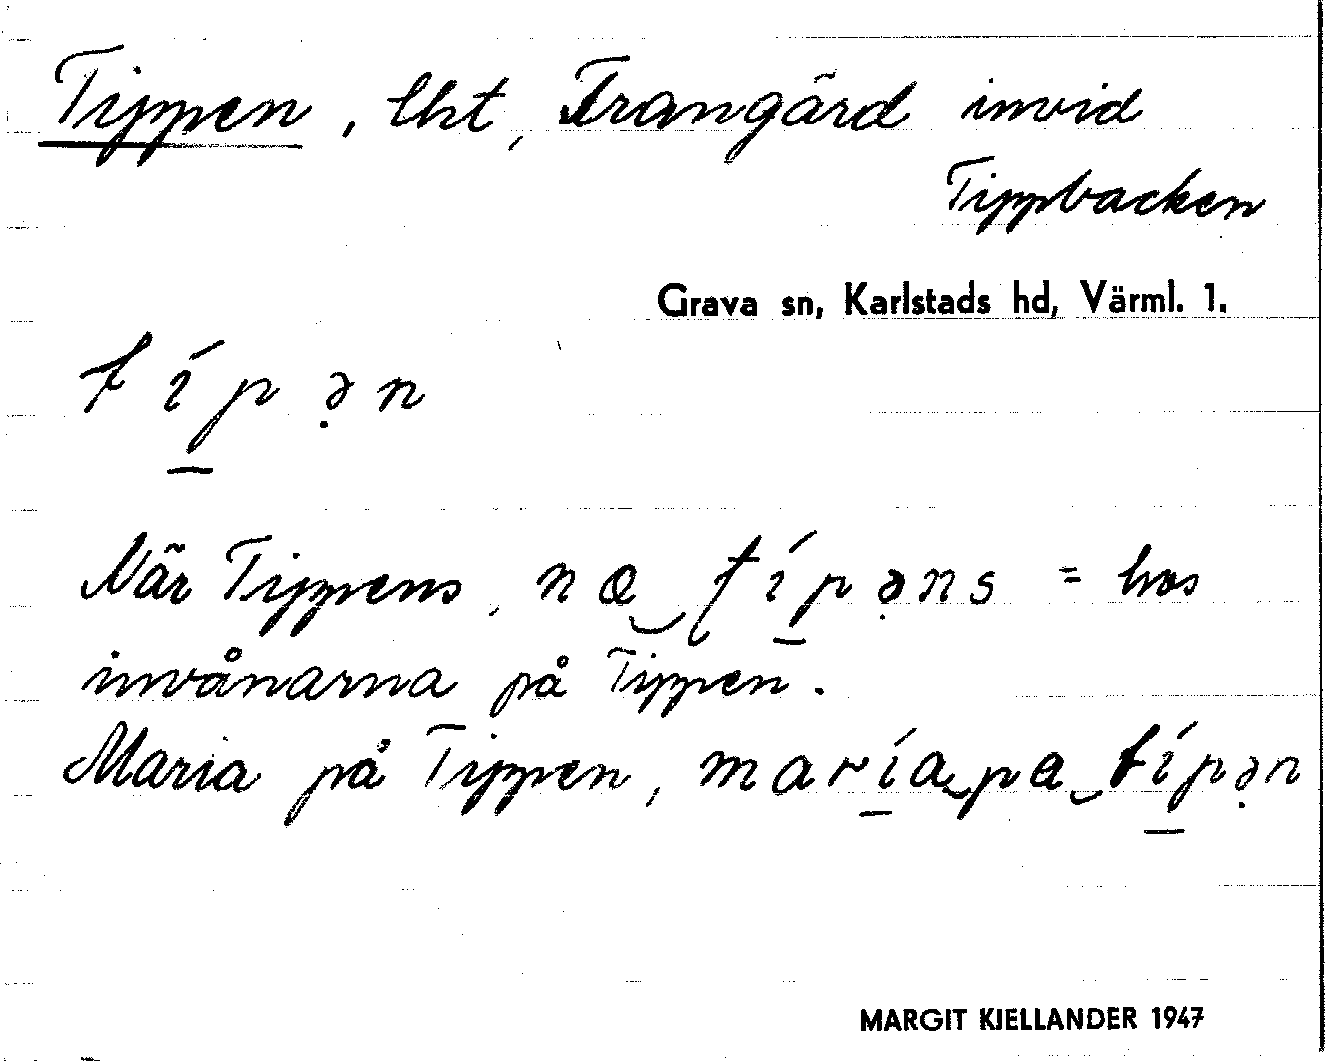 Tippen, lht, Frangärd invid
Tippbacken
Grava sn, Karlstads hd, Värml. 1.
t í p ə̣ n
När Tippens, n æ‿t í p ə̣ n s = hos
invånarna på Tippen.
Maria på Tippen, m a r í a‿p a‿t í p ə̣ n
MARGIT KJELLANDER 1947